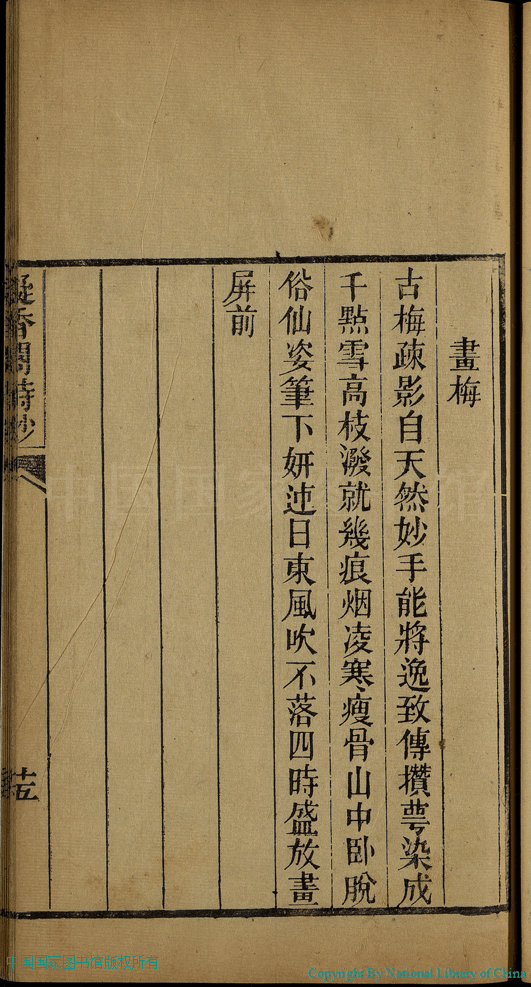 畫梅
古梅疎影自天然妙手能將逸致傳攢萼染成
千點雪高枝潑就幾痕烟凌寒瘦骨山中卧脫
俗仙姿筆下妍連日東風吹不落四時盛放畫
屏前
凝香閣詩鈔
十五
中国国家图书馆版权所有
Copyright By National Library of China